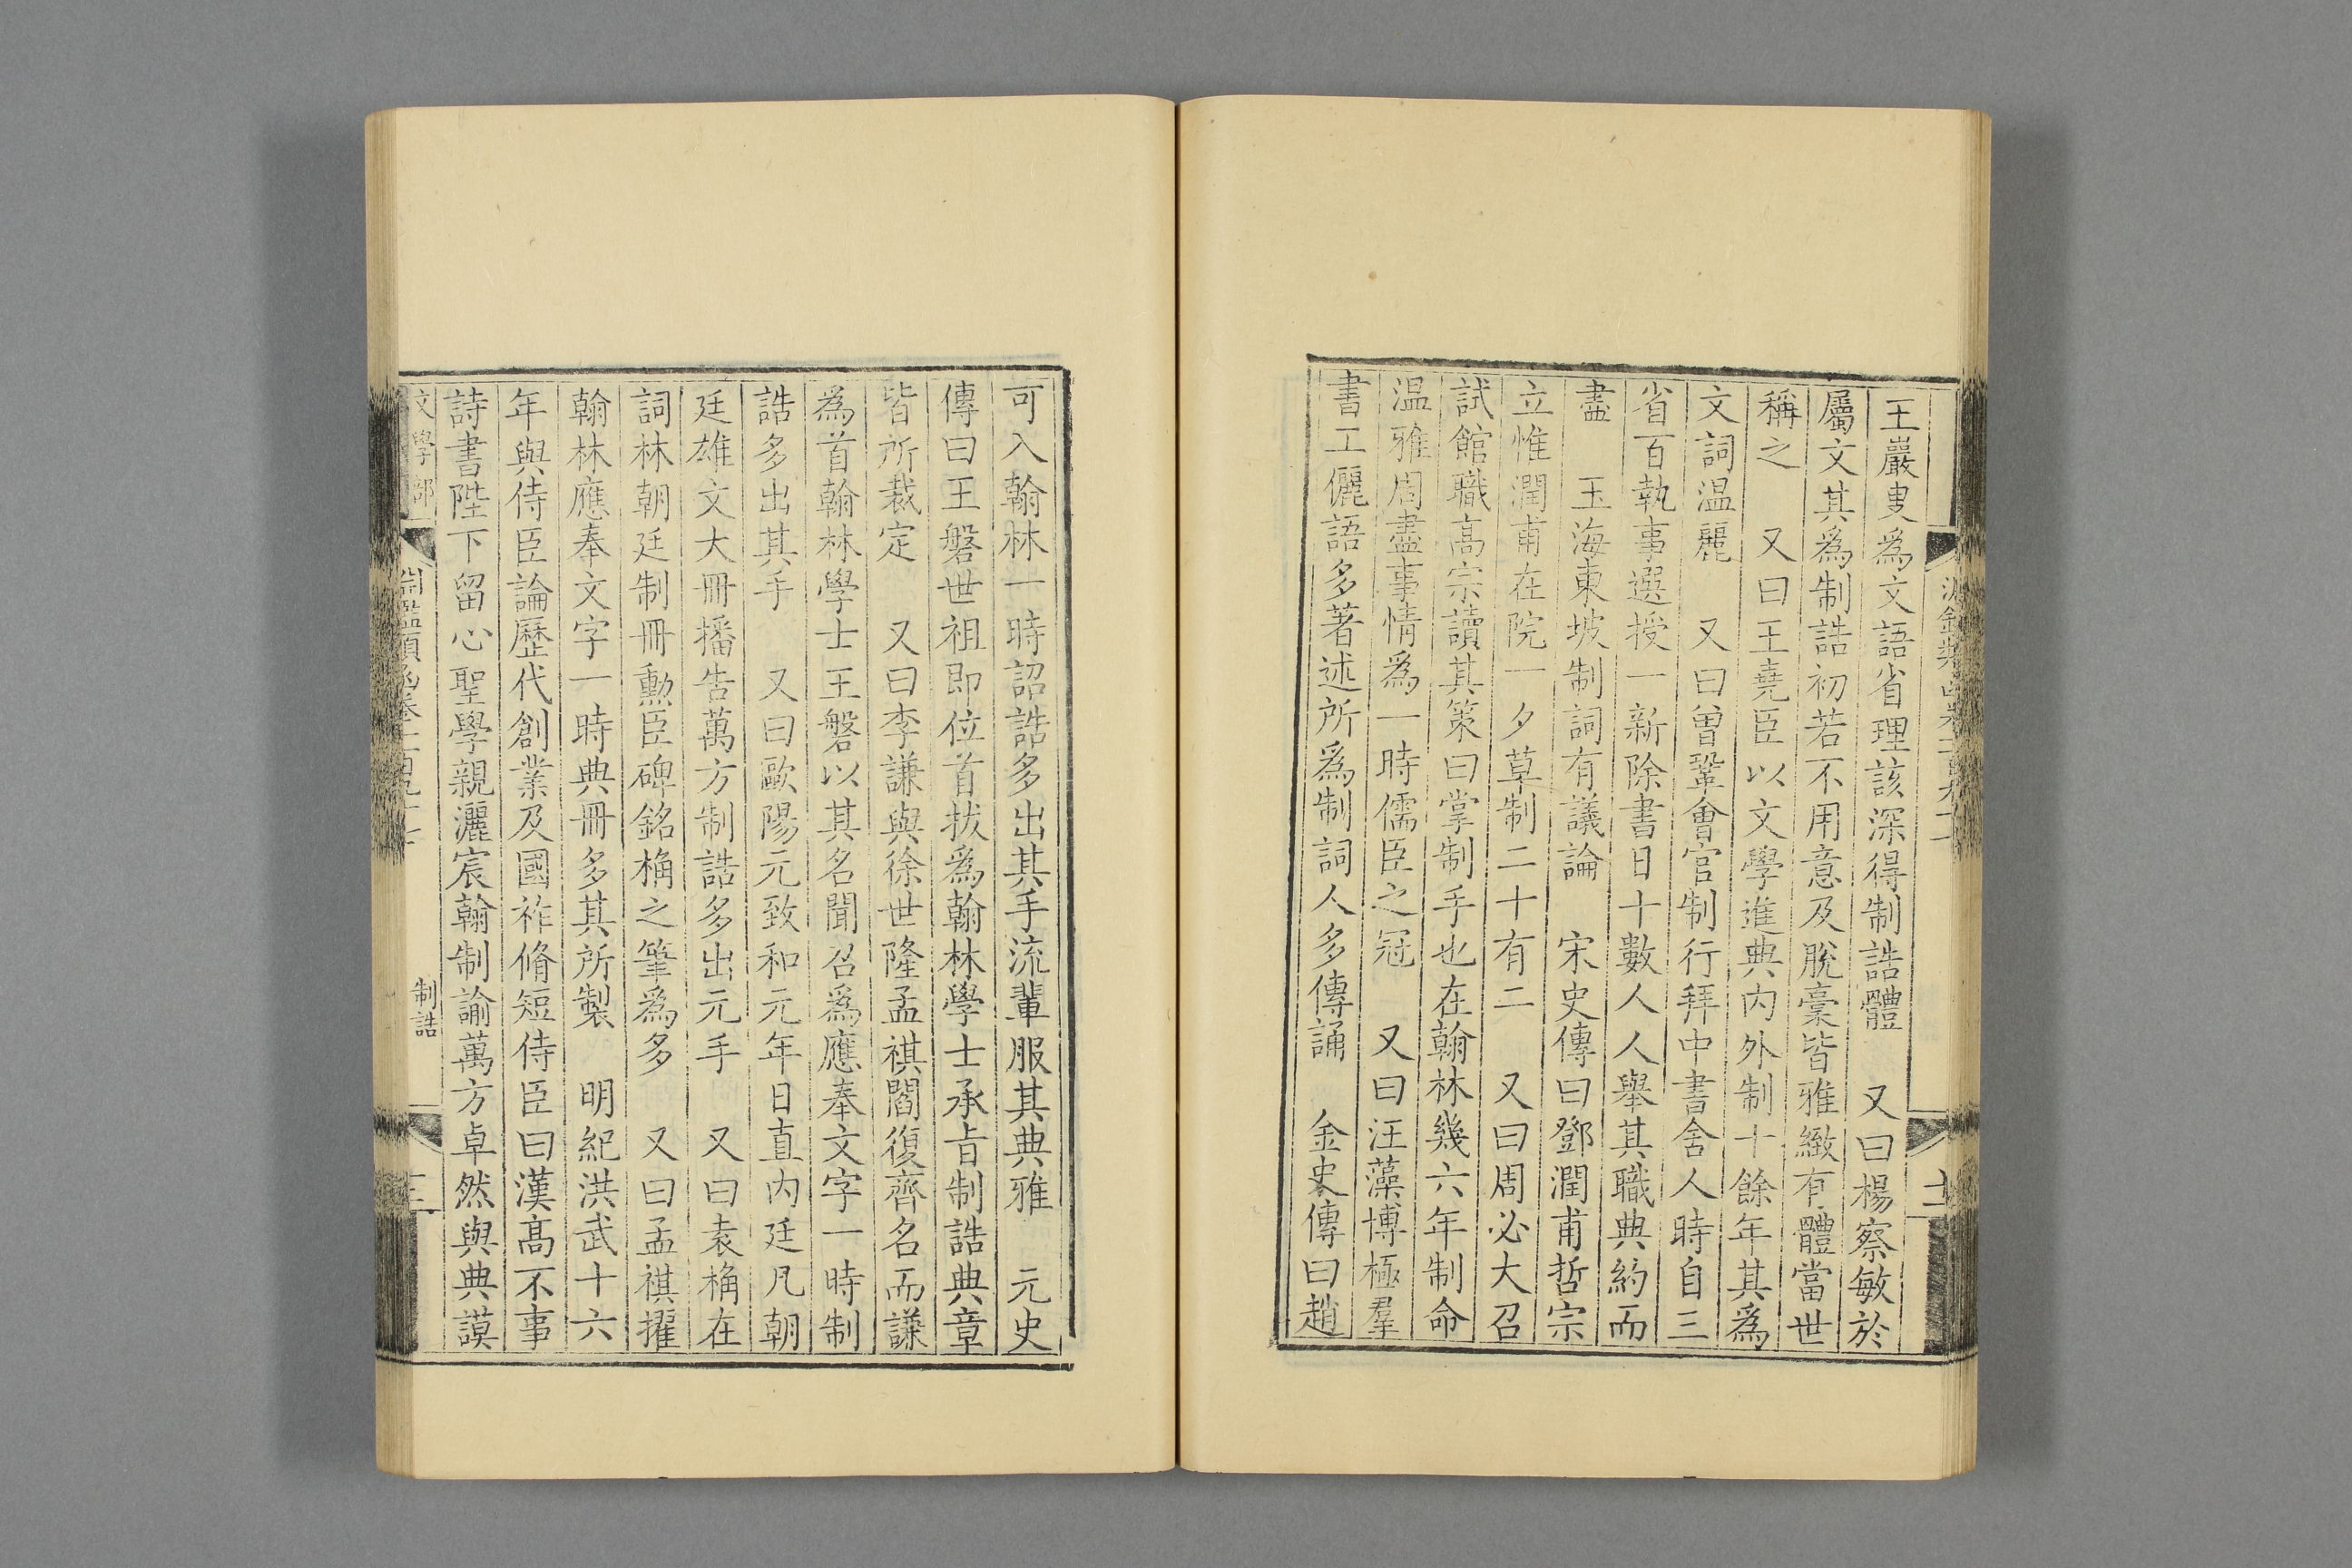 王巖叟為文語省理該深得制誥體　又曰楊察敏於
屬文其為制誥初若不用意及脫稾皆雅緻有體當世
稱之　又曰王堯臣以文學進典內外制十餘年其為
文詞温麗　又曰曾鞏會官制行拜中書舍人時自三
省百執事選授一新除書日十數人人舉其職典約而
盡　玉海東坡制詞有議論　宋史傳曰鄧潤甫哲宗
立惟潤甫在院一夕草制二十有二　又曰周必大召
試館職高宗讀其策曰掌制手也在翰林幾六年制命
温雅周盡事情為一時儒臣之冠　又曰汪藻博極羣
書工儷語多著述所為制詞人多傳誦　金史傳曰趙
可入翰林一時詔誥多出其手流輩服其典雅　元史
傳曰王磐世祖即位首拔為翰林學士承旨制誥典章
皆所裁定　又曰李謙與徐世隆孟祺閻復齊名而謙
為首翰林學士王磐以其名聞召為應奉文字一時制
誥多出其手　又曰歐陽元致和元年日直內廷凡朝
廷雄文大冊播告萬方制誥多出元手　又曰袁桷在
詞林朝廷制冊勳臣碑銘桷之筆為多　又曰孟祺擢
翰林應奉文字一時典冊多其所製　明紀洪武十六
年與侍臣論歷代創業及國祚脩短侍臣曰漢高不事
詩書陛下留心聖學親灑宸翰制諭萬方卓然與典謨
文學部
制誥